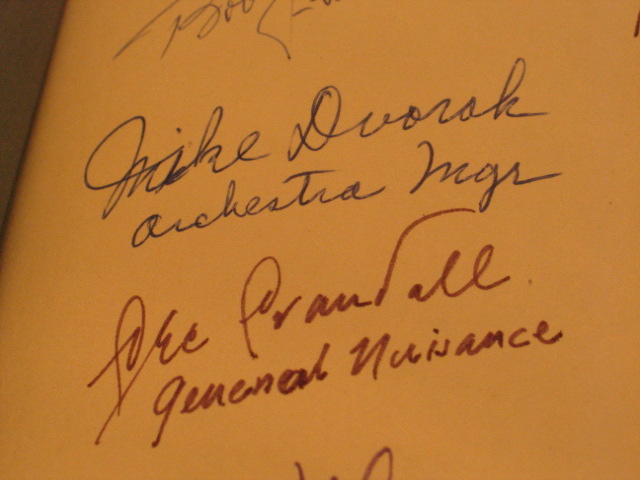 Mike Dvorak
Orchestra Mgr
Crandall
General Nuisance